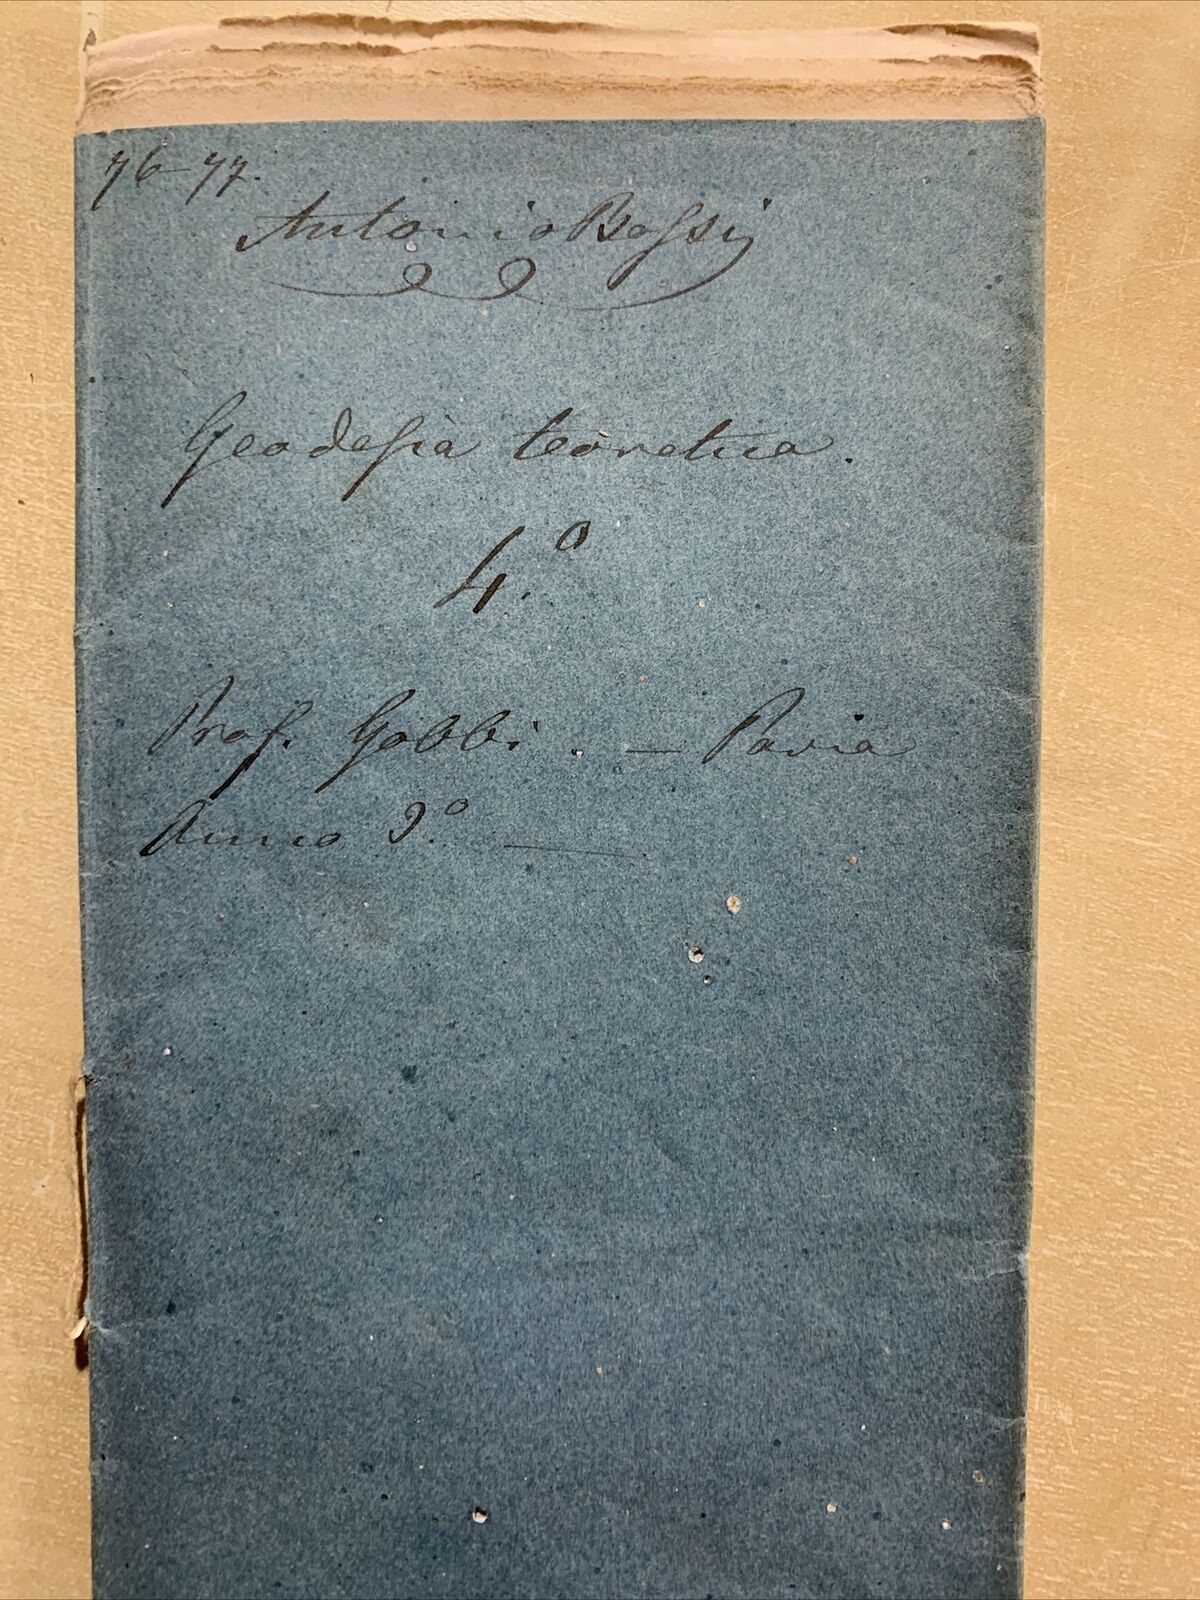 76-77.
Antonio Bossi
Geodesia teoretica.
4.º
Prof. Gobbi. — Pavia
Anno 2.º